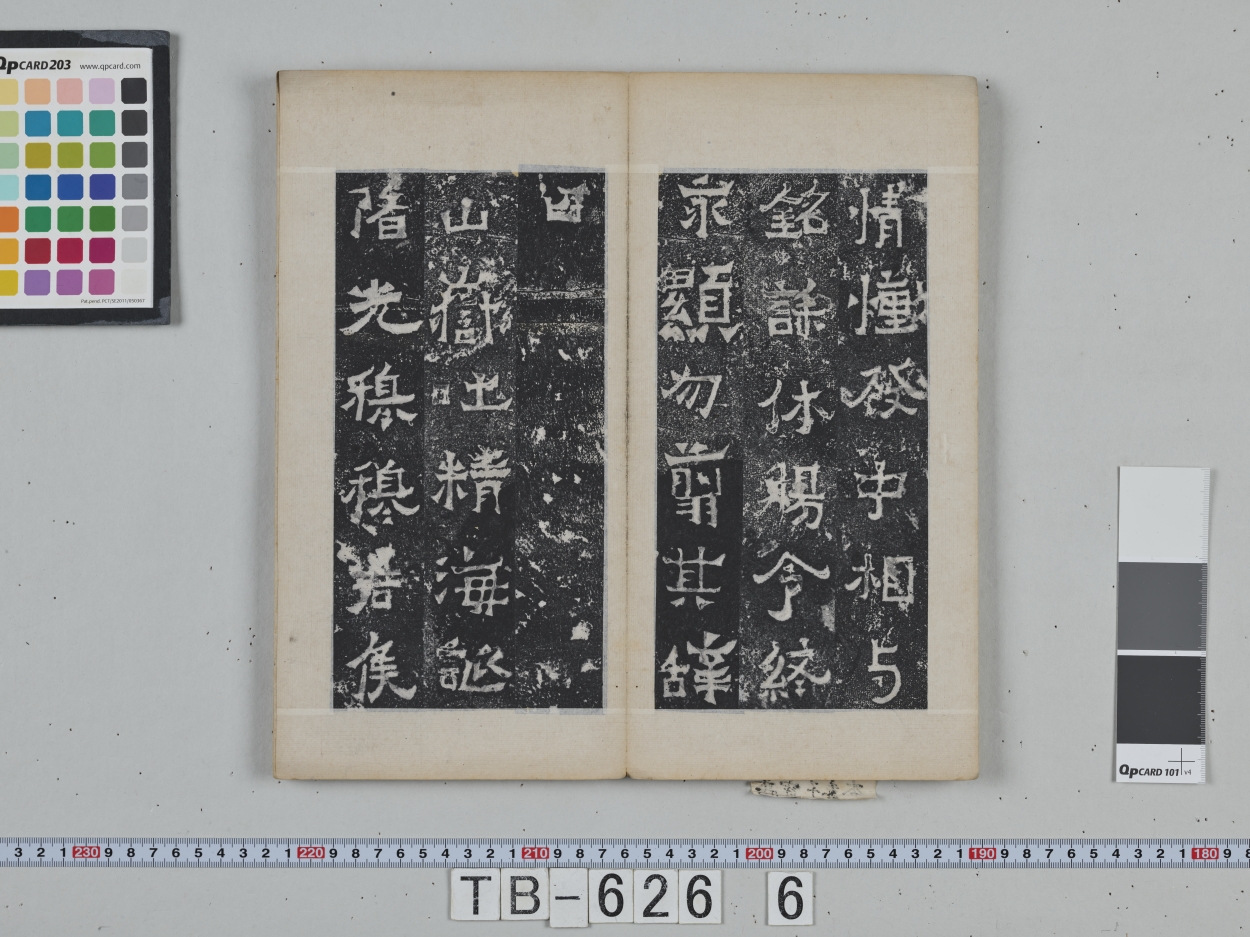 情慟發中相与
銘誄休揚令終
永顯勿翦其辭
曰
山嶽吐精海誕
陼光穆穆君侯
QPCARD 203 www.qpcard.com
QPCARD 101 v4
3 2 1 230 9 8 7 6 5 4 3 2 1 220 9 8 7 6 5 4 3 2 1 210 9 8 7 6 5 4 3 2 1 200 9 8 7 6 5 4 3 2 1 190 9 8 7 6 5 4 3 2 1 180 9 8
TB-626 6